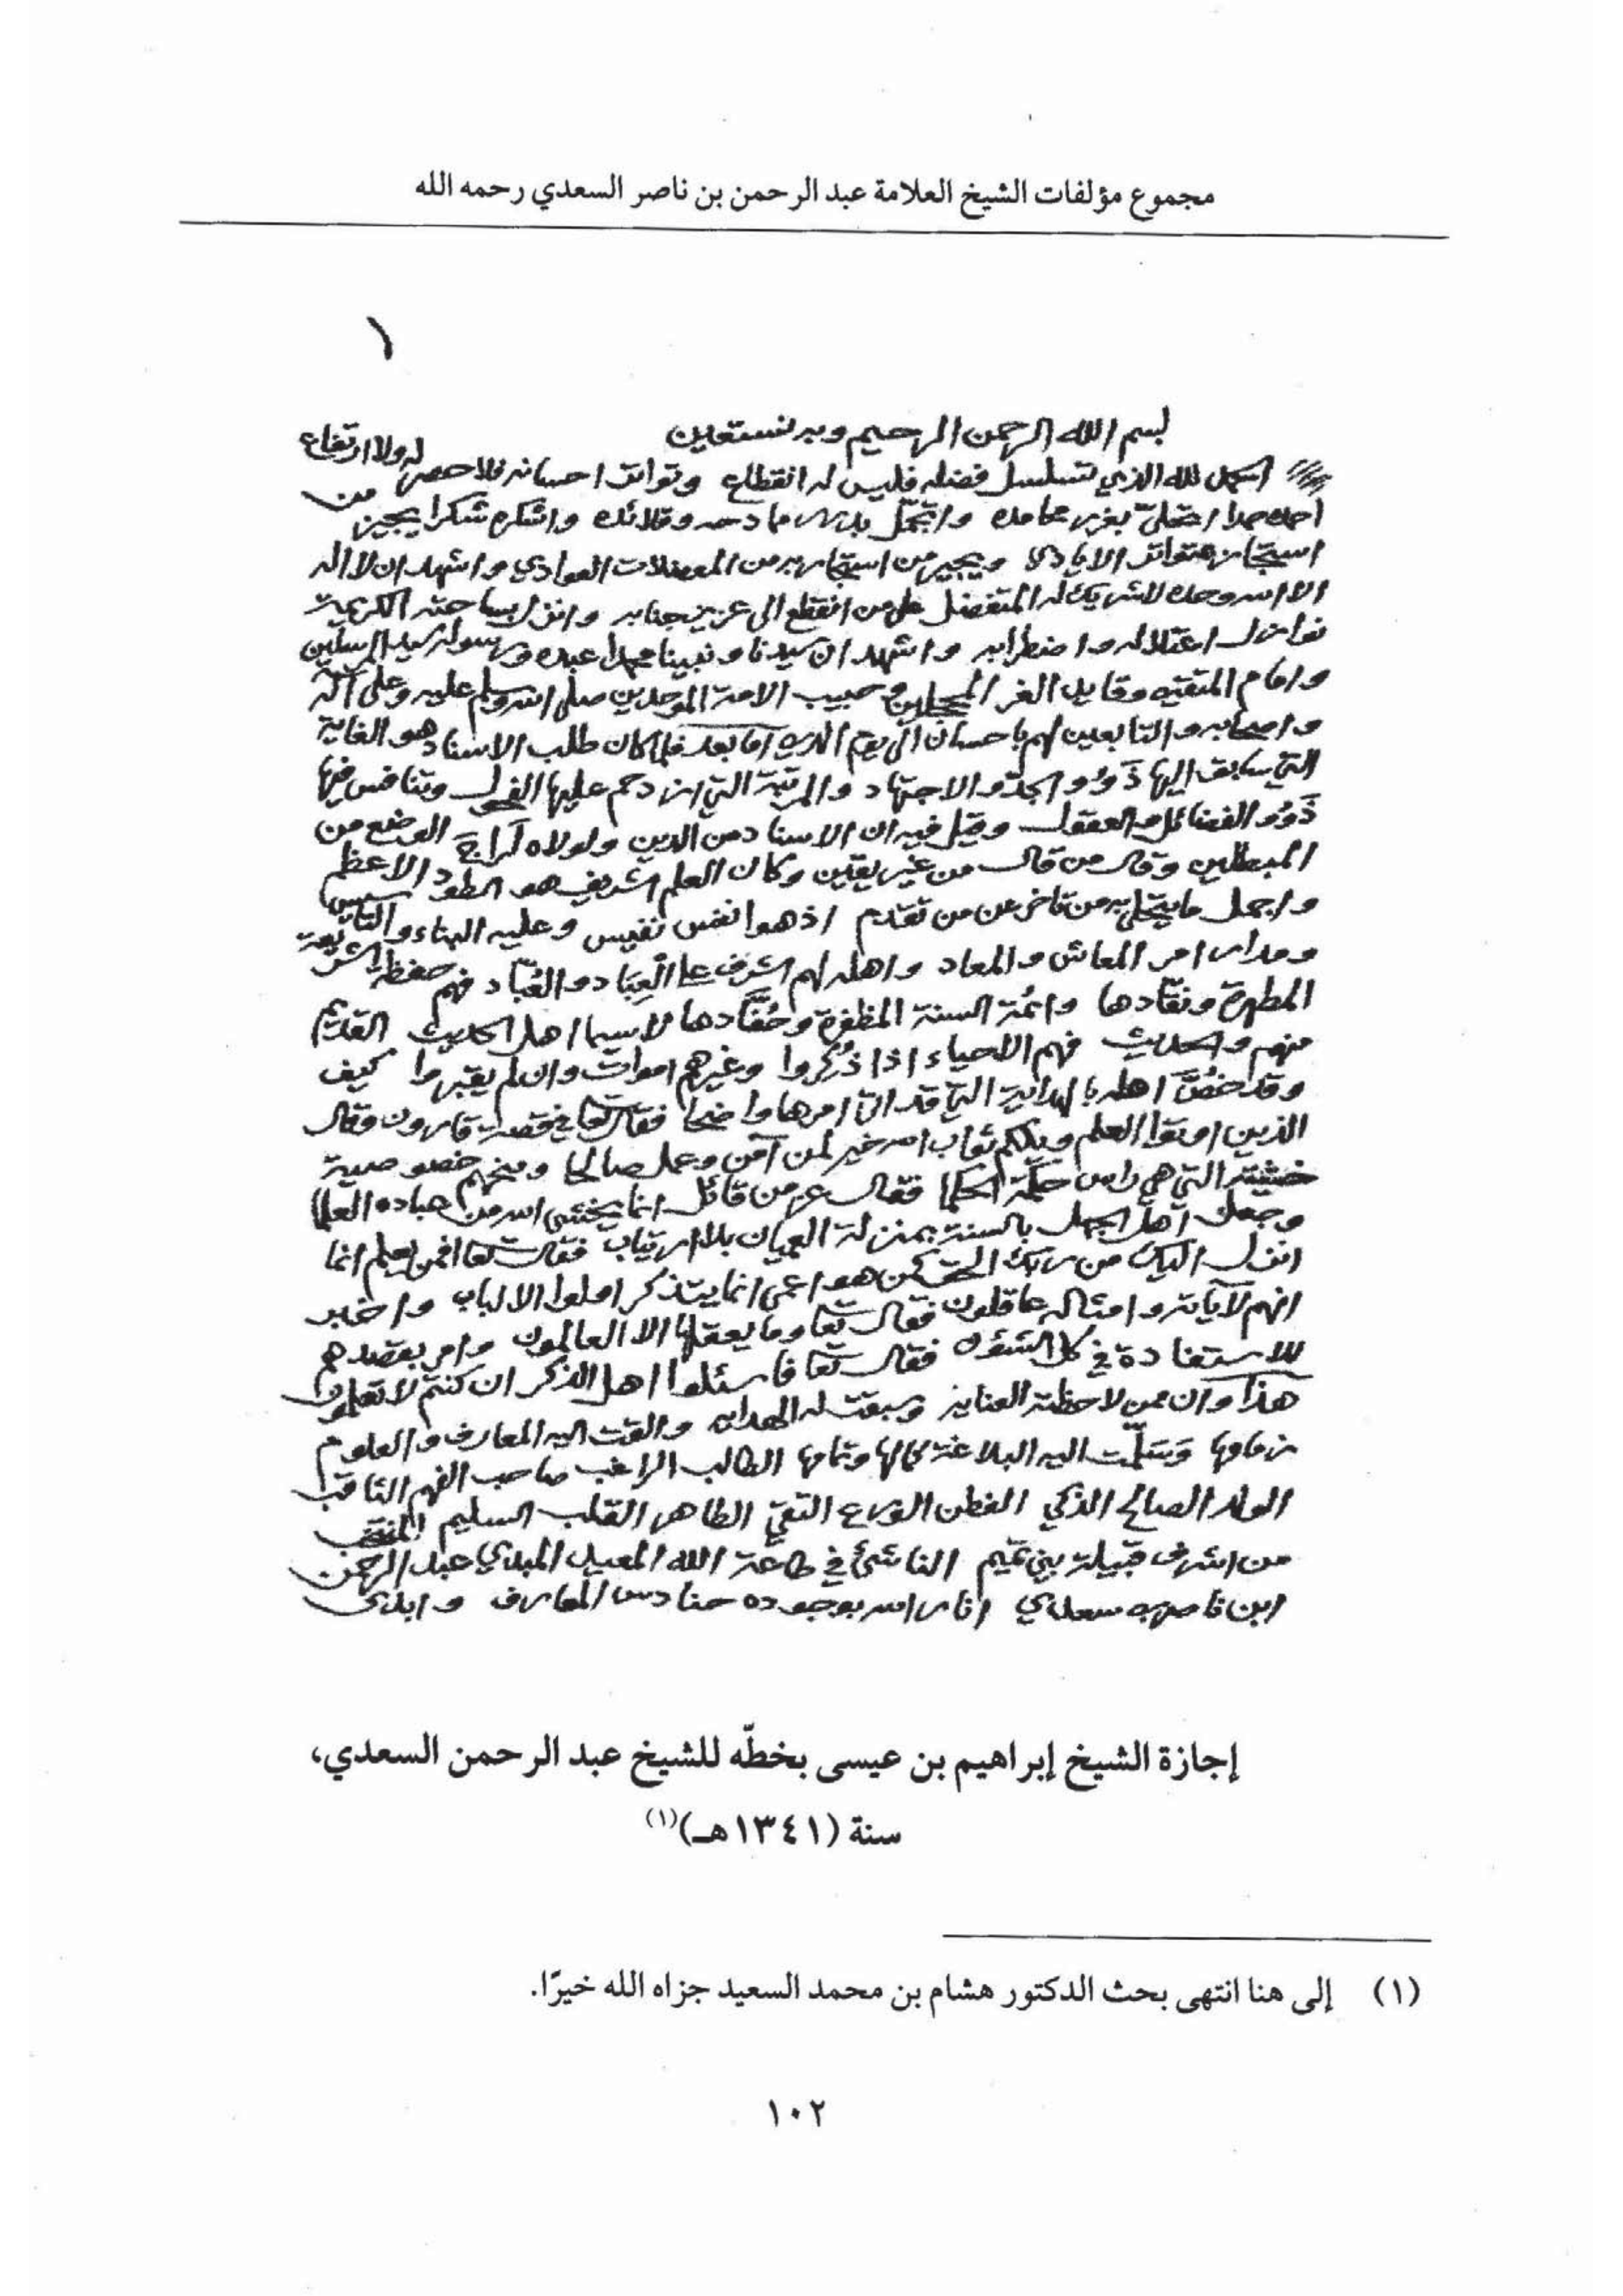 مجموع مؤلفات الشيخ العلامة عبد الرحمن بن ناصر السعدي رحمه الله
١
بسم الله الرحمن الرحيم وبه نستعين
الحمد لله الذي تسلسل فضله فليس له انقطاع وتواتر احسانه فلا حصر له ولا ارتفاع
احمده حمدا بغرير محامده واشكره شكرا يجيز من
استجازه متواتر الايادي ويجير من استجار به من المعضلات العوادي واشهد ان لا اله
الا الله وحده لا شريك له المتفضل على من انقطع الى عزيز جنابه وانزل بساحته الكريمة
نوازل اعتلاله واضطرابه واشهد ان سيدنا ونبينا محمدا عبده ورسوله سيد المرسلين
وامام المتقين وقايد الغر المحجلين وحبيب الامة الموحدين صلى الله وسلم عليه وعلى آله
واصحابه والتابعين لهم باحسان الى يوم الدين اما بعد فلما كان طلب الاسناد هو الغاية
التي سابق اليها ذَوُو الجدّ والاجتهاد والمرتبة التي ازدحم عليها الفحول وتنافس فيها
ذَوُو الفضائل والعقول وقيل فيه ان الاسناد من الدين ولولاه لراج الوضع من
المبطلين وقال من قال من غير يقين وكان العلم الشريف هو الطود الاعظم
واجمل ما يتحلى به من تأخر عن من تقدم اذ هو انفس نفيس وعليه البناء والتأسيس
ومدار امر المعاش والمعاد واهله لهم الشرف على الْعِبَاد والعُبَّاد فهم حفظة الشريعة
المطهرة ونقّادها وائمُة السنة المظفرة وحُفَّادها لا سيما اهل الحديث القديم
منهم والحديث فهم الاحياء اذا ذُكروا وغيرهم اموات وان لم يقبروا كيف
وقد خصَّ اهله بالهداية التي قد اتى امرها واضحا فقال تعا في قصة قارون وقال
الذين اوتوا العلم ويلكم ثواب الله خير لمن آمن وعمل صالحا ومنحهم خصوصية
خشيته التي هي راس حكمة الحكما فقال عز من قائل انما يخشى الله من عباده العلما
وجعل اهل الجهل بالسنة بمنزلة العميان بلا ارتياب فقال تعا افمن يعلم انما
انزل اليك من ربك الحق كمن هو اعمى انما يتذكر اولوا الالباب واخبر
انهم لآياته وامثاله عاقلون فقال تعا وما يعقلها الا العالمون وامر بقصدهم
للاستفادة في كل الشئون فقال تعا فاسئلوا اهل الذكر ان كنتم لا تعلمون
هذا وان ممن لاحظته العناية وسبقت له الهداية والقت اليه المعارف والعلوم
زمامها وسَلّمت اليه البلاغة كمالها وتمامها الطالب الراغب صاحب الفهم الثاقب
الولد الصالح الذكي الفطن الورع التقيّ الطاهر القلب السليم المنتخب
من اشرف قبيلة بني تميم الناشئ في طاعة الله المعيد المبدي عبد الرحمن
ابن ناصر سعدي انار الله بوجوده حنادس المعارف وابدى
إجازة الشيخ إبراهيم بن عيسى بخطّه للشيخ عبد الرحمن السعدي،
سنة (١٣٤١هـ)(١)
(١) إلى هنا انتهى بحث الدكتور هشام بن محمد السعيد جزاه الله خيرًا.
١٠٢